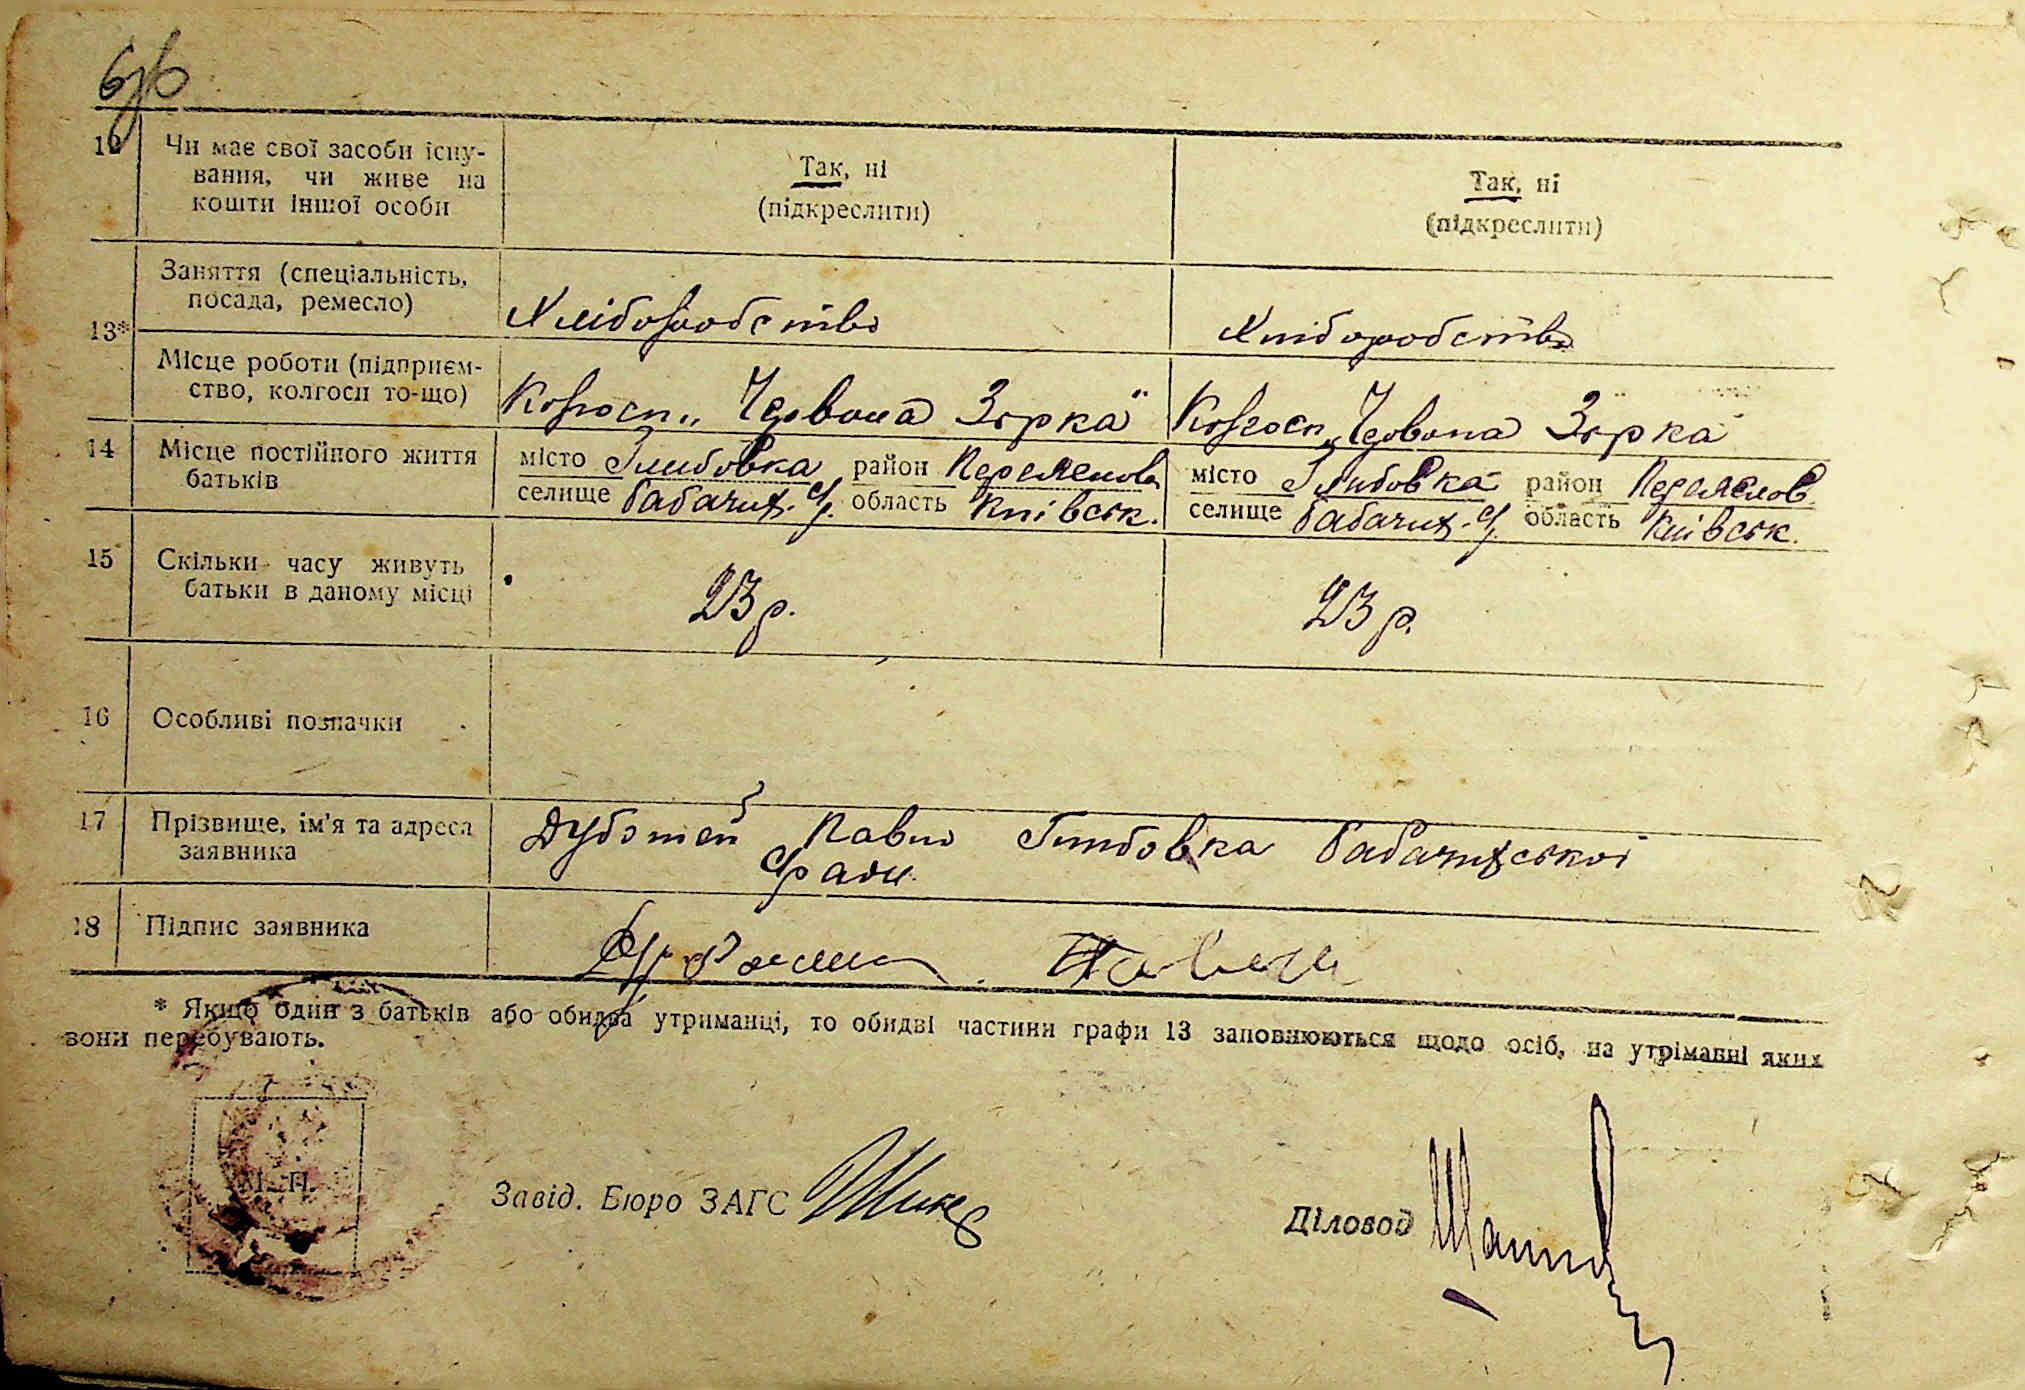 12 Чи має свої засоби існу-
вання, чи живе на
кошти іншої особи
Так, ні
(підкреслити)
Так, ні
(підкреслити)
13*
Заняття (спеціальність,
посада, ремесло)
Хліборобство
Хліборобство
Місце роботи (підприєм-
ство, колгосп то-що)
Колгосп „Червона Зорка"
Колгосп „Червона Зорка"
14 Місце постійного життя
батьків
місто Глибовка район Переяслов
селище Бабачих. с/р. область Київськ.
місто Глибовка район Переяслов
селище Бабачих. с/р. область Київськ.
15 Скільки часу живуть
батьки в даному місці
23 р.
23 р.
16 Особливі позначки
17 Прізвище, ім'я та адреса
заявника
Павло Глибовка Бабачихської
с/ради
18 Підпис заявника
* Якщо один з батьків або обидва утриманці, то обидві частини графи 13 заповнюються щодо осіб, на утріманні яких
вони перебувають.
М. П.
Завід. Бюро ЗАГС
Діловод